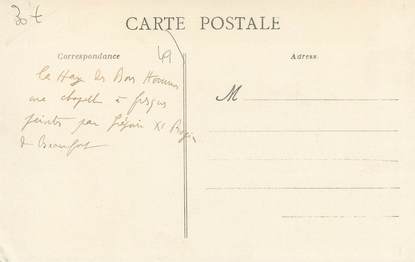 30 t
CARTE POSTALE
49
Correspondance
Adresse
La Haye des Bons Hommes
une chapelle à fresques
peintes par Grégoire XI Roger
de Beaufort
M